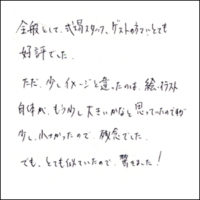 全般として、式場スタッフ、ゲストの方々にとても
好評でした。
ただ、少しイメージと違ったのは、絵・イラスト
自体が、もう少し大きいかなと思っていたのですが
少し小さかったので、残念でした。
でも、とても似ていたので、驚きました!